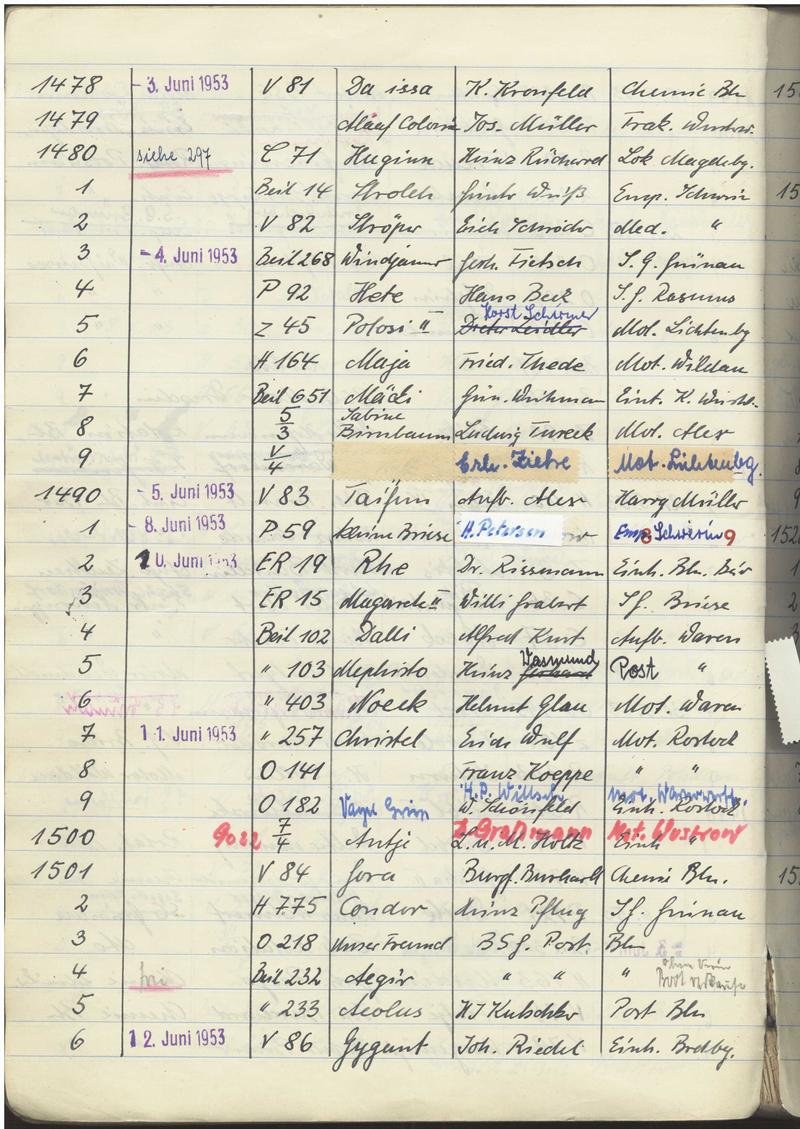 1478 - 3. Juni 1953 V 81 Da issa K. Kronfeld Chemie Bln
1479 Jos. Müller Frak.
1480 siehe 297 C 71 Huginn Heinz Lok Magdebg.
1 Beil 14 Strolch Emp. Schwerin
2 V 82 Ströper Erich Schröder Med. "
3 - 4. Juni 1953 Beil 268 Windjammer Gerh. Fietsch S.G. Grünau
4 P 92 Hete Hans Beck S.G.
Horst Schirmer
5 Z 45 Polosi II Dieter Mot. Lichtenbg
6 H 164 Maja Fried. Thede Mot. Wildau
7 Beil 651 Mädi Gün. Einh. K. Wusth.
Sabine
8 5/3 Birnbaum Ludwig Tureck Mot. Alex
9 V/4 Erh. Mot. Lichtenbg.
1490 - 5. Juni 1953 V 83 Taifun Aufb. Alex Harry Müller
1 - 8. Juni 1953 P 59 kleine Briese H. Petersen Emp. Schwerin 9
2 10. Juni 1953 ER 19 Rhe Dr. Rissmann Einh. Bln. Bär
3 ER 15 II Willi Grabert Sg. Briese
4 Beil 102 Dalli Alfred Kurt Aufb. Waren
Wasmund
5 " 103 Mephisto Heinz Post "
6 " 403 Noeck Helmut Glau Mot. Waren
7 11. Juni 1953 " 257 Christel Erich Wulf Mot. Rostock
8 O 141 Franz Koeppe " "
H.P.
9 O 182 Grün W. Schönfeld Einh. Rostock
Graßmann Mot. Wustrow
1500 7/4 Antje L. u. M. Holtz Einh "
1501 V 84 Jora Burgf. Burhardt Chemie Bln.
2 H 775 Condor Heinz Pflug Sg. Grünau
3 O 218 unser Freund BSG. Post. Bln
4 frei Beil 232 Aegir " " "
ohne Verein
Boot
5 " 233 Aeolus Post Bln
6 12. Juni 1953 V 86 Gygant Joh. Riedel Einh. Brdbg.